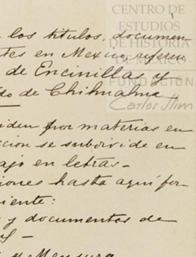 CENTRO DE
ESTUDIOS
DE HISTORIA
DE MÉXICO
FUNDACIÓN
Carlos Slim
los títulos, documen
tes en Mexico, referen
de Encinillas y
de Chihuahua
iden por materias en
ccion se subdivide en
ajo en letras-
iones hasta aqui for-
iente:
y documentos de
Mensura